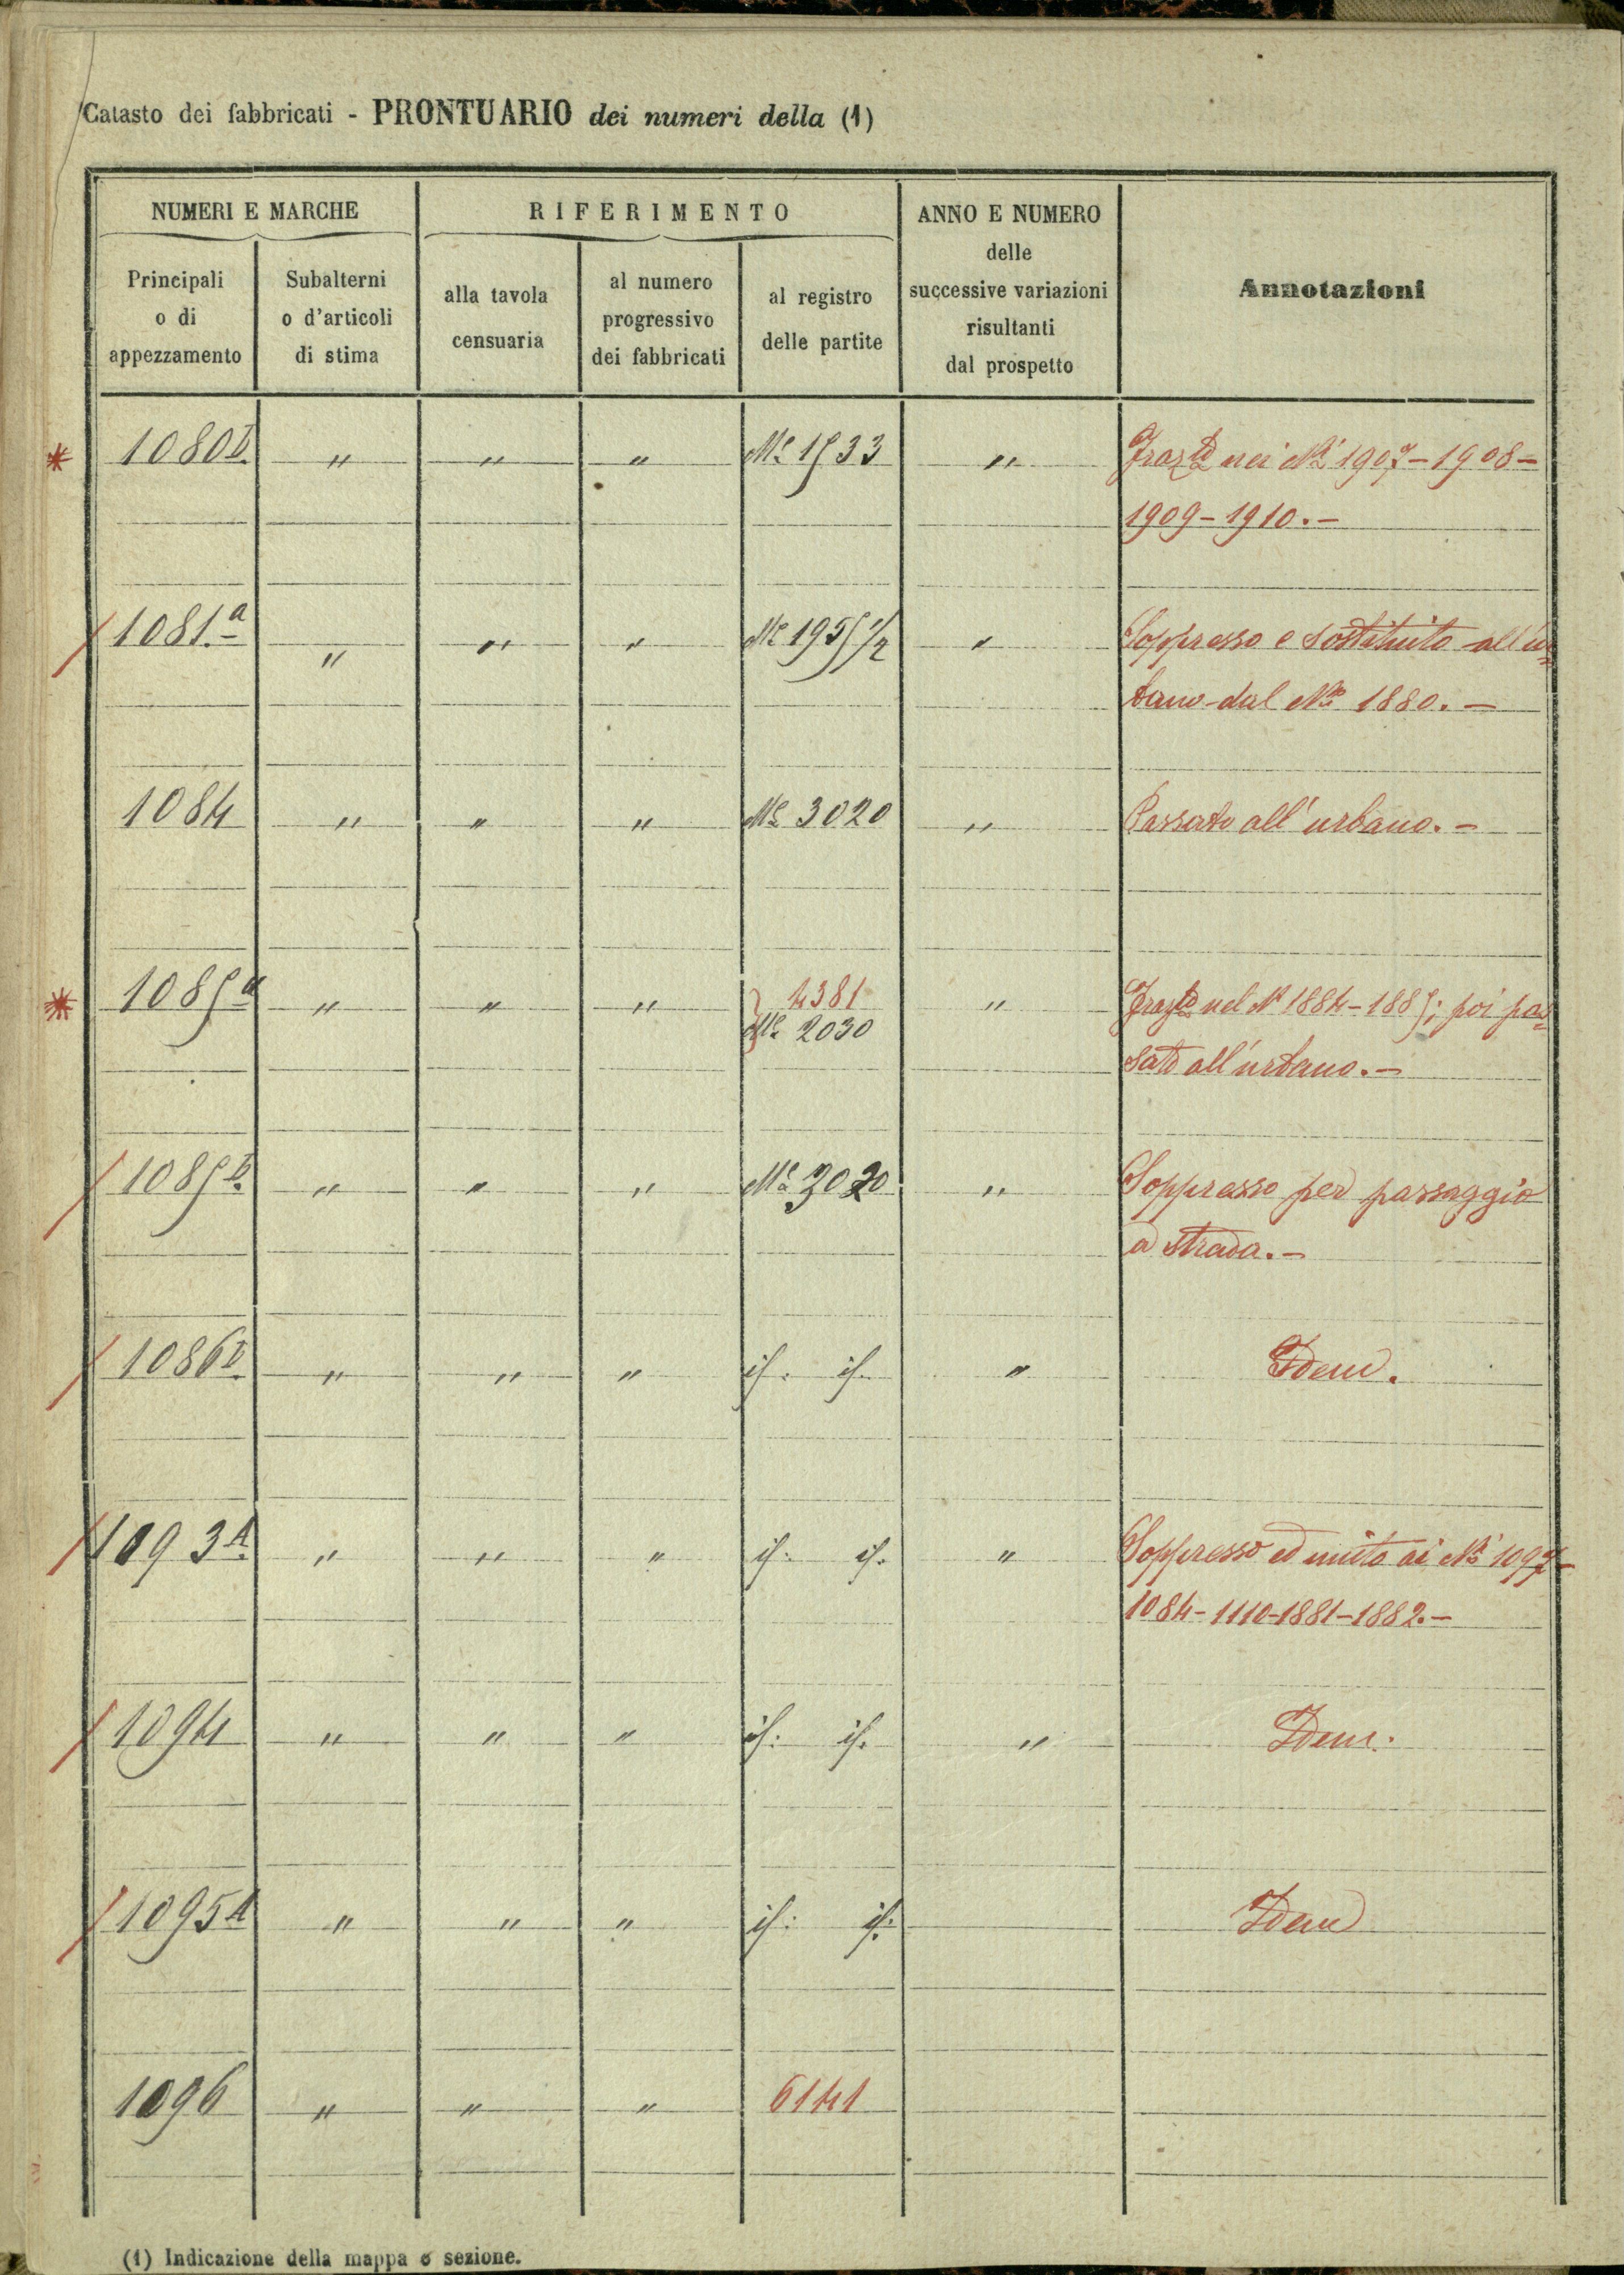 Catasto dei fabbricati - PRONTUARIO dei numeri della (1)
NUMERI E MARCHE
RIFERIMENTO
ANNO E NUMERO
delle
successive variazioni
risultanti
dal prospetto
Annotazioni
Principali
o di
appezzamento
Subalterni
o d'articoli
di stima
alla tavola
censuaria
al numero
progressivo
dei fabbricati
al registro
delle partite
* 1080 b " " " 1533 " nei Ni 1907-1908-
1909-1910.-
/ 1081.a " " " 1955 1/2 " Soppresso e sostituito all'ur=
bano dal No 1880.-
1084 " " " 3020 " Passato all'urbano.-
* 1085 a " " " 4381 " nel N 1884-1885; poi pas=
2030
sato all'urbano.-
/ 1085 b. " " " 3020 " Soppresso per passaggio
a strada.-
/ 1086 b " " " id. id. " Idem.
/ 1093 A. " " " id: id: " Soppresso ed unito ai Ni 1097-
1084-1110-1881-1882.-
/ 1094 " " " id: id. " Idem.
/ 1095 A " " " id: id: Idem
1096 " " " 6141
(1) Indicazione della mappa o sezione.